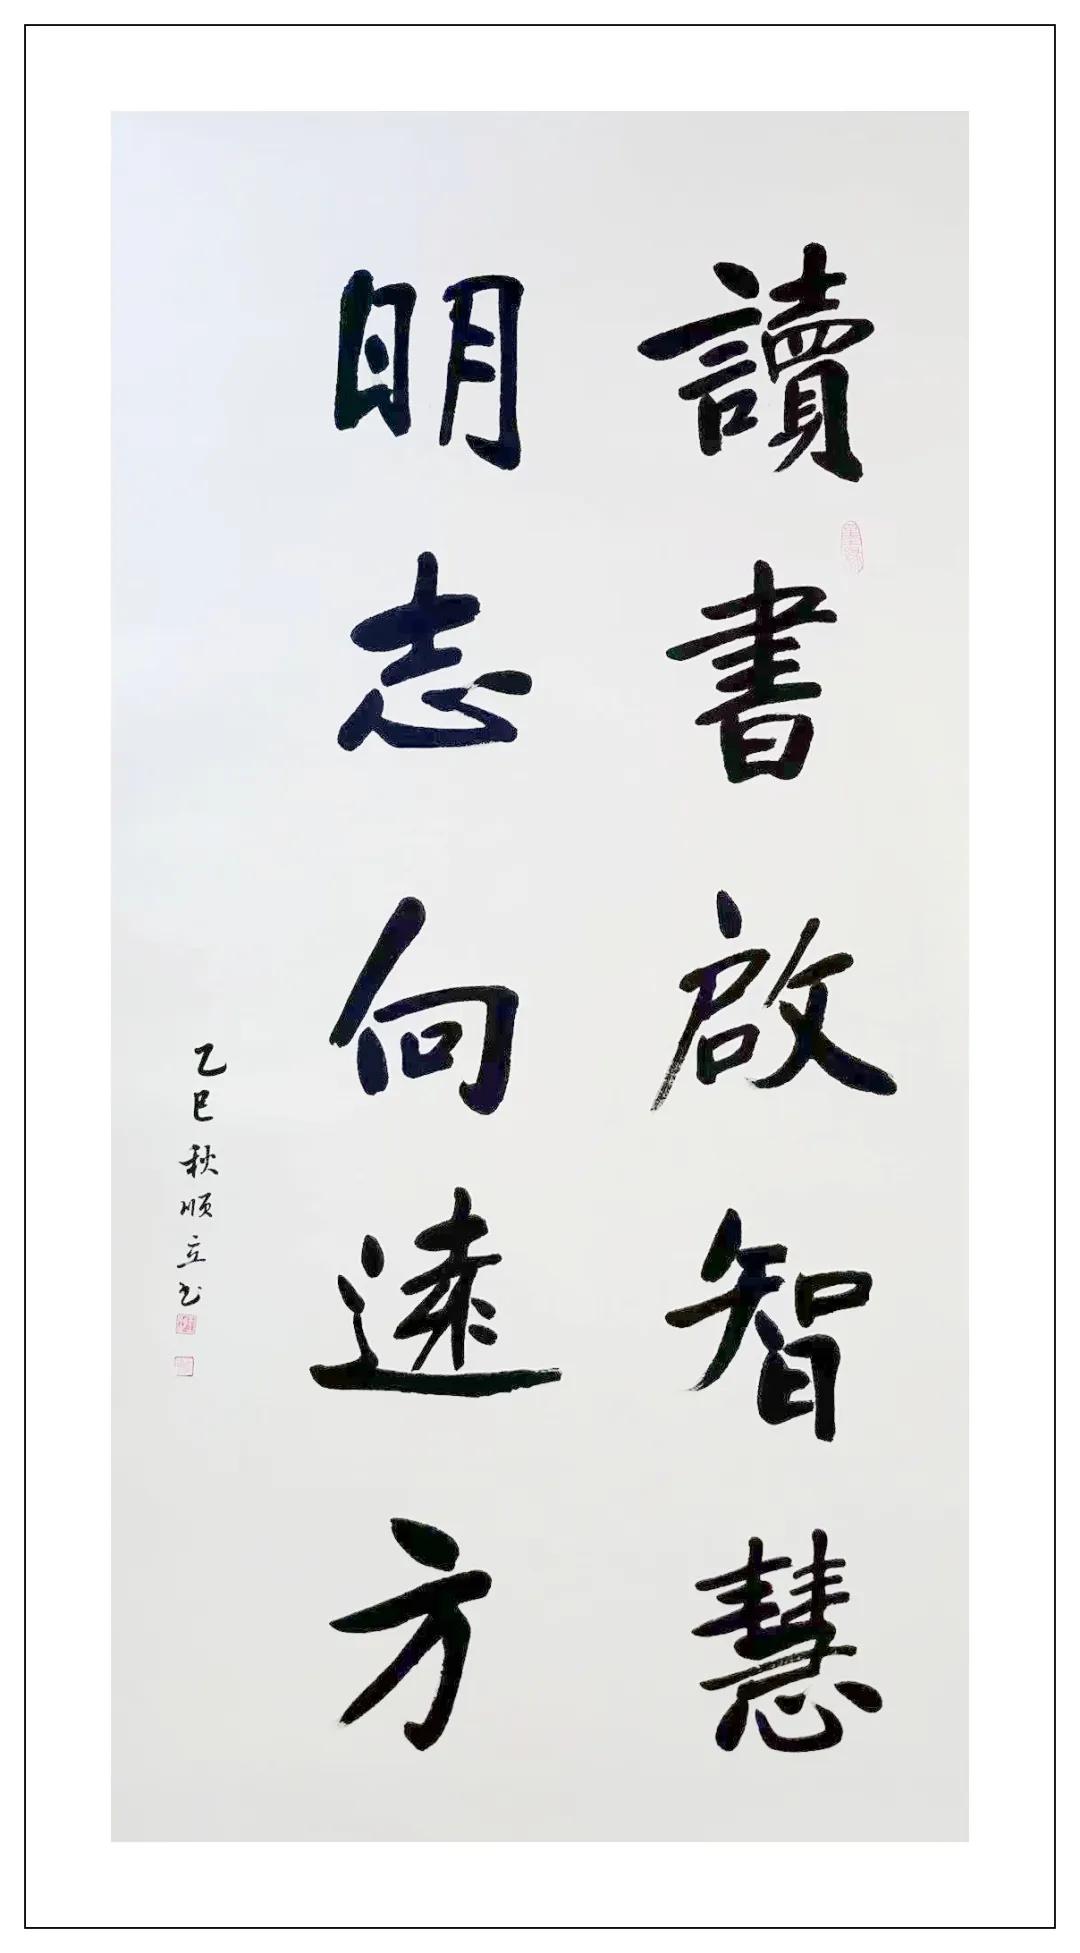 讀書啟智慧
明志向遠方
乙巳秋顺立书